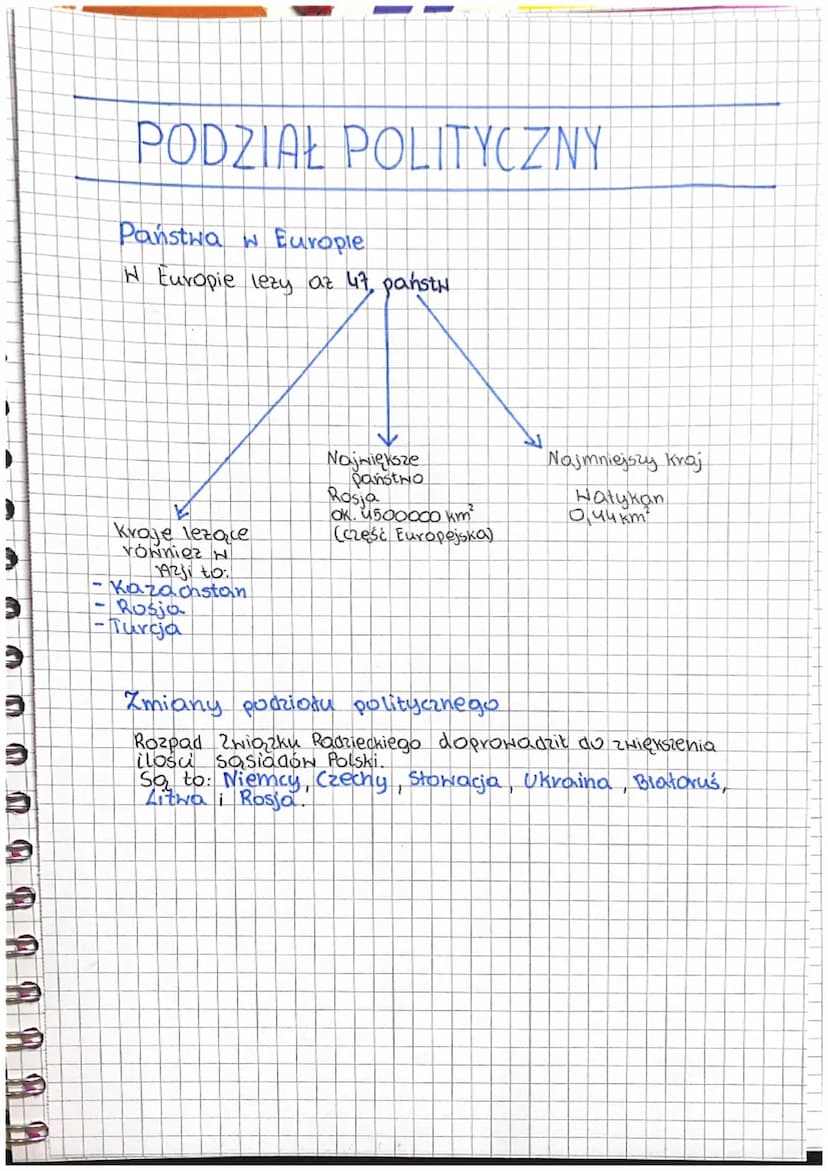 PODZIAŁ POLITYCZNY
Państwa w Europie
W Europie leży aż 47 państw
Kraje leżące
również w
Azji to:
- Kazachstan
- Rosja
- Turcja
Największe
państwo
Rosja
ok. 4500000 km²
(część Europejska)
Najmniejszy kraj
Watykan
0,44 km²
Zmiany podziału politycznego
Rozpad Związku Radzieckiego doprowadził do zwiększenia
ilości sąsiadów Polski.
Są to: Niemcy, Czechy, Słowacja, Ukraina, Białoruś,
Litwa i Rosja.